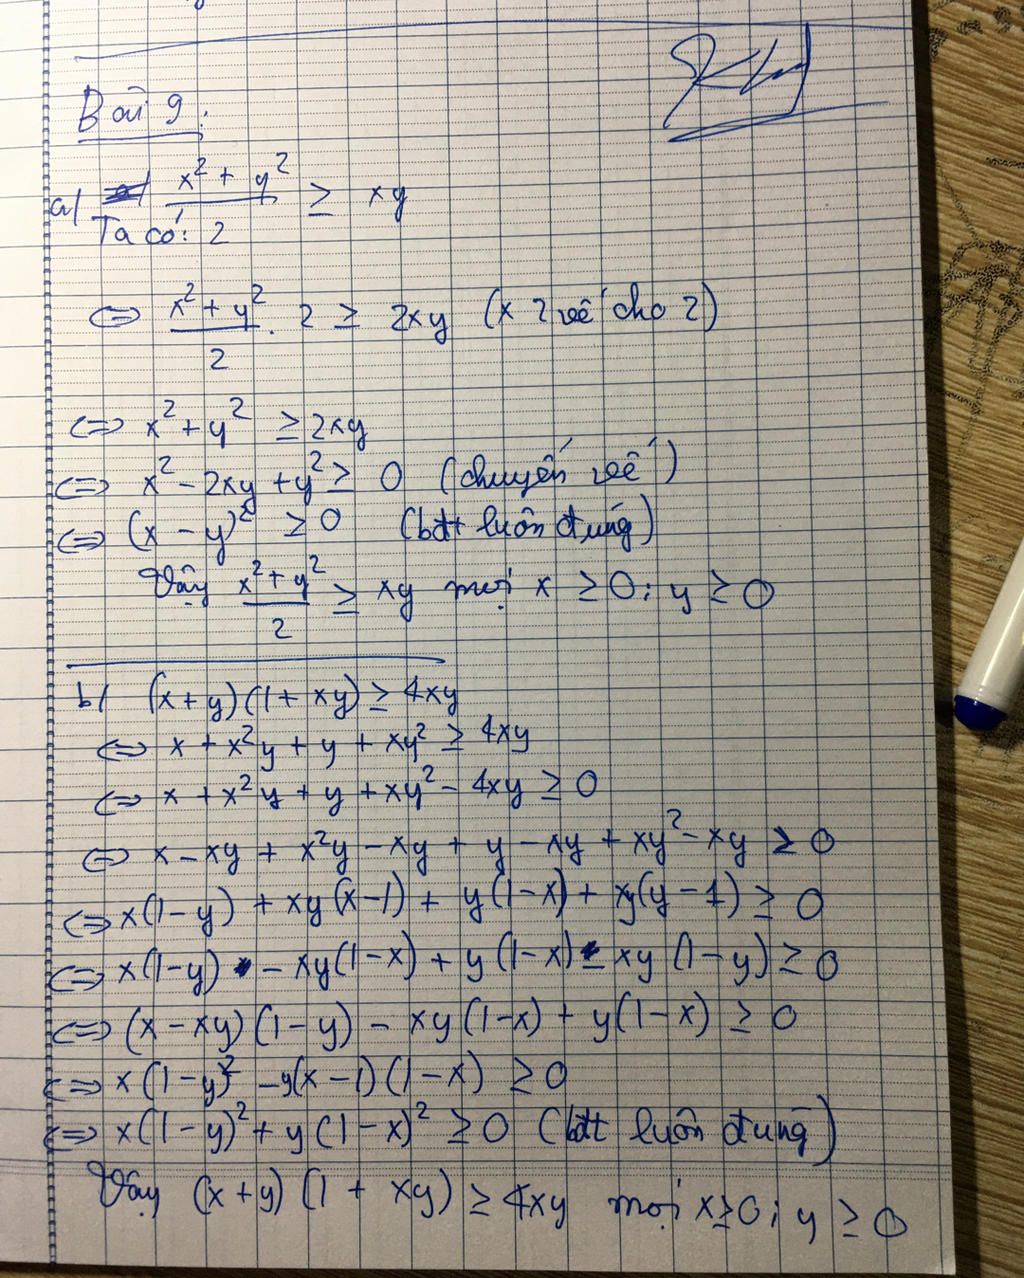 Bài 9:
a/ x² + y² / 2 ≥ xy
Ta có:
⇔ x² + y² / 2 . 2 ≥ 2xy (x 2 vế cho 2)
⇔ x² + y² ≥ 2xy
⇔ x² - 2xy + y² ≥ 0 (chuyển vế)
⇔ (x - y)² ≥ 0 (bđt luôn đúng)
Vậy x² + y² / 2 ≥ xy mọi x ≥ 0; y ≥ 0
b/ (x + y)(1 + xy) ≥ 4xy
⇔ x + x²y + y + xy² ≥ 4xy
⇔ x + x²y + y + xy² - 4xy ≥ 0
⇔ x - xy + x²y - xy + y - xy + xy² - xy ≥ 0
⇔ x(1 - y) + xy(x - 1) + y(1 - x) + xy(y - 1) ≥ 0
⇔ x(1 - y) - xy(1 - x) + y(1 - x) - xy(1 - y) ≥ 0
⇔ (x - xy)(1 - y) - xy(1 - x) + y(1 - x) ≥ 0
⇔ x(1 - y)² - y(x - 1)(1 - x) ≥ 0
⇔ x(1 - y)² + y(1 - x)² ≥ 0 (bđt luôn đúng)
Vậy (x + y)(1 + xy) ≥ 4xy mọi x ≥ 0; y ≥ 0